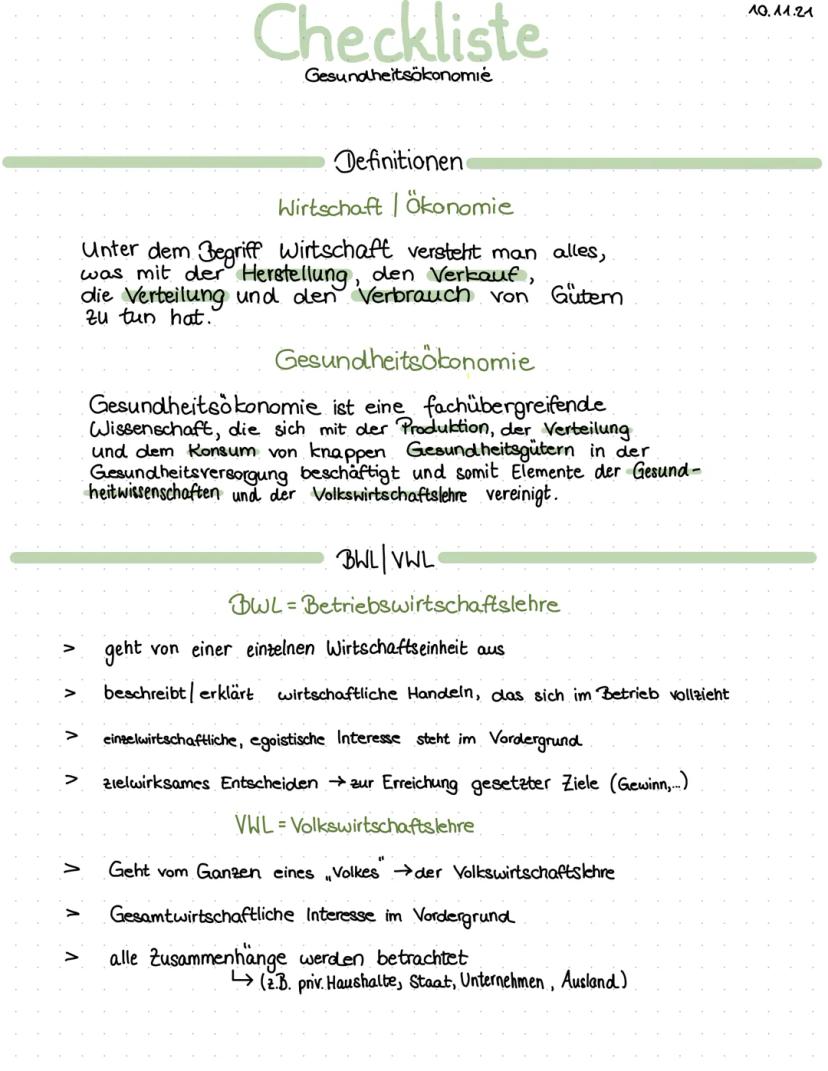 10.11.21
Checkliste
Gesundheitsökonomie
Definitionen
Wirtschaft | Ökonomie
Unter dem Begriff Wirtschaft versteht man alles,
was mit der Herstellung, den Verkauf,
die Verteilung und den Verbrauch von Gütern
zu tun hat.
GesundheitsÖkonomie
Gesundheitsökonomie ist eine fachübergreifende
Wissenschaft, die sich mit der Produktion, der Verteilung
und dem Konsum von knappen Gesundheitsgütern in der
Gesundheitsversorgung beschäftigt und somit Elemente der Gesund-
heitwissenschaften und der Volkswirtschaftslehre vereinigt.
BWL | VWL
BWL = Betriebswirtschaftslehre
> geht von einer einzelnen Wirtschaftseinheit aus
> beschreibt | erklärt wirtschaftliche Handeln, das sich im Betrieb vollzieht
> einzelwirtschaftliche, egoistische Interesse steht im Vordergrund
> zielwirksames Entscheiden → zur Erreichung gesetzter Ziele (Gewinn,...)
VWL = Volkswirtschaftslehre
> Geht vom Ganzen eines „Volkes" → der Volkswirtschaftslehre
> Gesamtwirtschaftliche Interesse im Vordergrund
> alle Zusammenhänge werden betrachtet
↳ (z.B. priv. Haushalte, Staat, Unternehmen, Ausland)